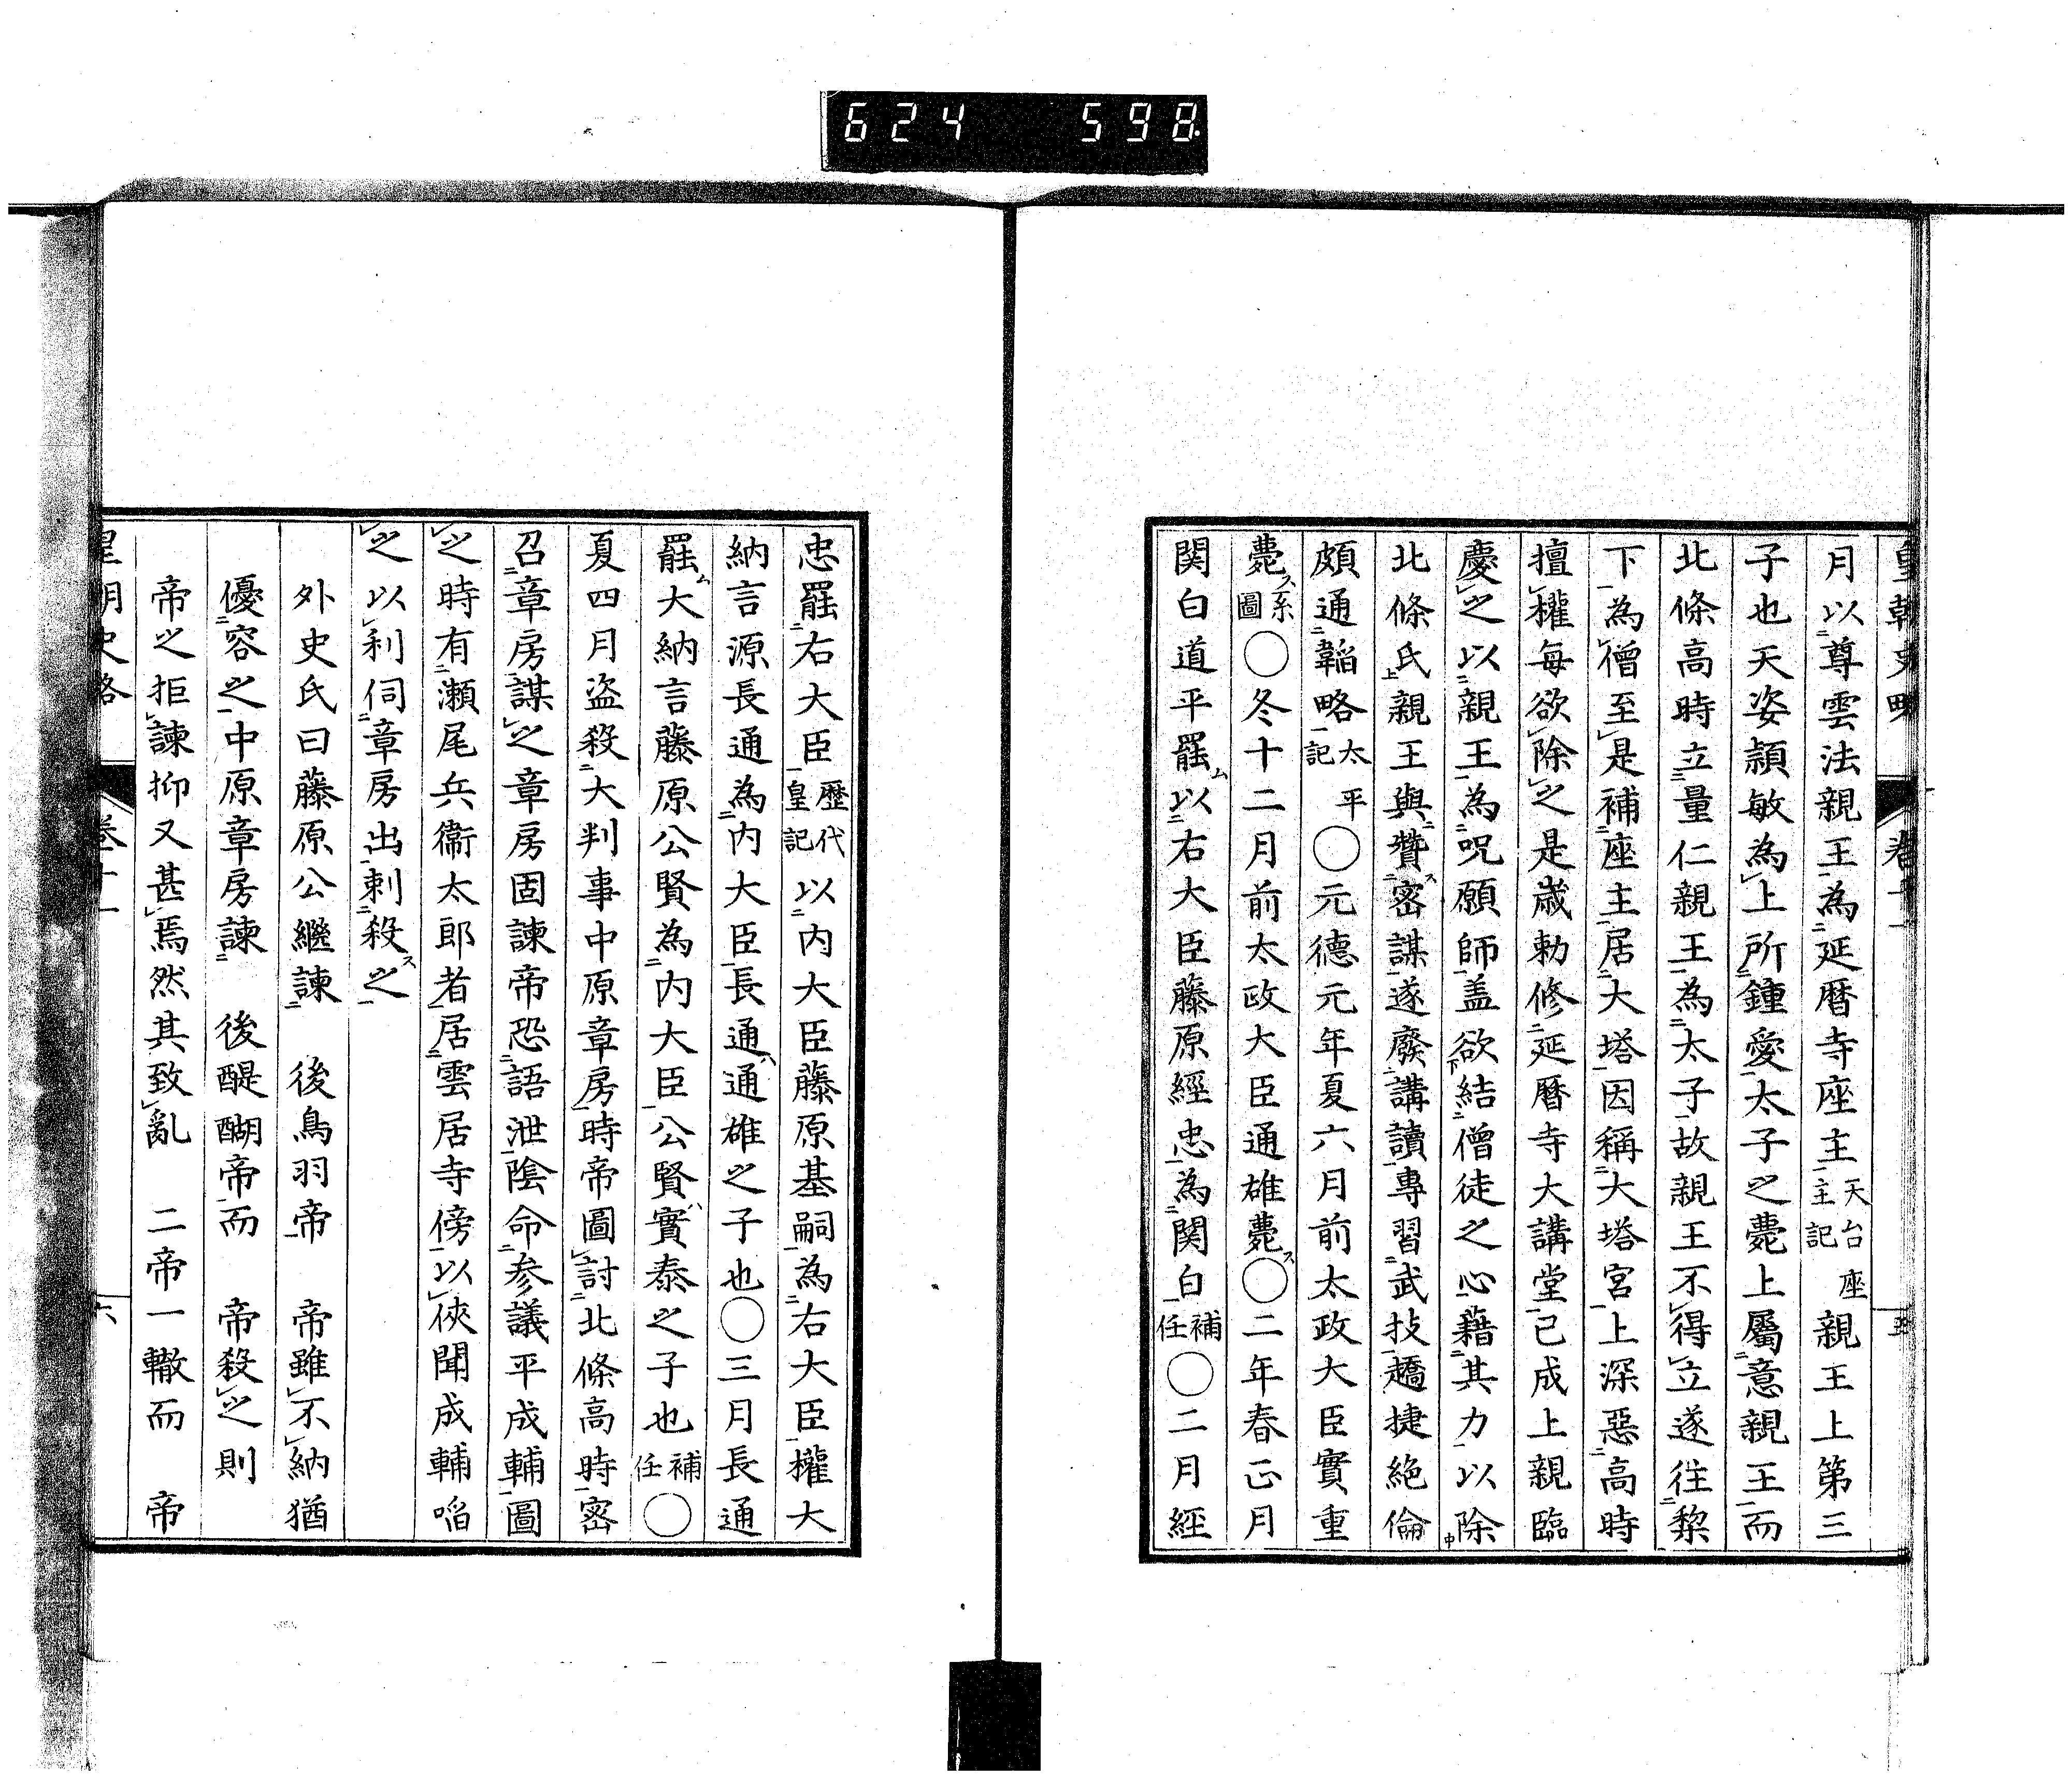 624 598
皇朝史略 卷十一 五
月以尊雲法親王為延暦寺座主天台座主記親王上第三
子也天姿穎敏為上所鍾愛太子之薨上屬意親王而
北條高時立量仁親王為太子故親王不得立遂往梨
下為僧至是補座主居大塔因稱大塔宮上深惡高時
擅權毎欲除之是歲勅修延暦寺大講堂已成上親臨
慶之以親王為呪願師盖欲結僧徒之心藉其力以除
北條氏親王與贊密謀遂廢講讀專習武技趫捷絶倫
頗通韜略太平記○元德元年夏六月前太政大臣實重
薨系圖○冬十二月前太政大臣通雄薨○二年春正月
関白道平罷以右大臣藤原經忠為関白補任○二月經
忠罷右大臣歴代皇記以内大臣藤原基嗣為右大臣權大
納言源長通為内大臣長通通雄之子也○三月長通
罷大納言藤原公賢為内大臣公賢實泰之子也補任○
夏四月盗殺大判事中原章房時帝圖討北條高時密
召章房謀之章房固諫帝恐語泄陰命參議平成輔圖
之時有瀬尾兵衞太郎者居雲居寺傍以俠聞成輔啗
之以利伺章房出刺殺之
外史氏曰藤原公繼諫 後鳥羽帝 帝雖不納猶
優容之中原章房諫 後醍醐帝而 帝殺之則
帝之拒諫抑又甚焉然其致亂 二帝一轍而 帝
皇朝史略 卷十一 六